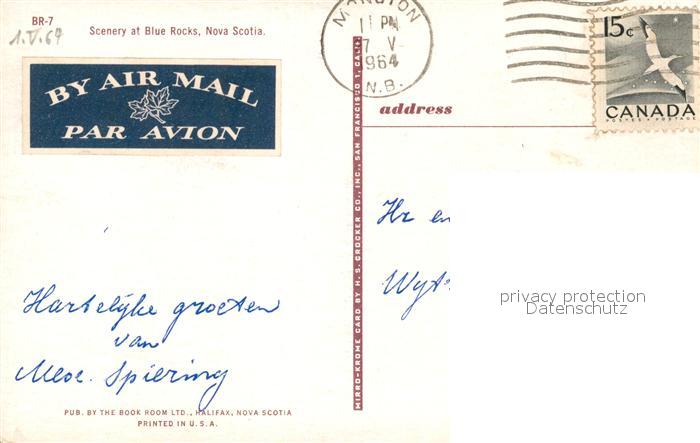 BR-7
Scenery at Blue Rocks, Nova Scotia.
1.V.64
BY AIR MAIL
PAR AVION
MONCTON
11 PM
7 V
1964
N.B.
15¢
CANADA
POSTES POSTAGE
address
MIRRO-KROME CARD BY H. S. CROCKER CO., INC., SAN FRANCISCO 1, CALIF.
Hr en
Wyt
privacy protection
Datenschutz
Hartelijke groeten
van
Spiering
PUB. BY THE BOOK ROOM LTD., HALIFAX, NOVA SCOTIA
PRINTED IN U.S.A.